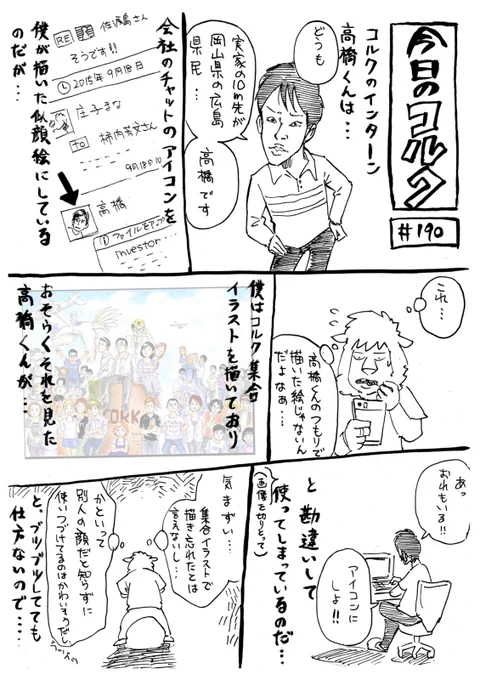 今日のコルク
#190
コルクのインターン
高橋くんは…
どうも
実家の10m先が
岡山県の広島
県民…
高橋です
会社のチャットのアイコンを
RE
佐渡島さん
そうです!!
2015年9月18日
庄子まな
TO
柿内芳文さん
9月18日
高橋
Investor
僕が描いた似顔絵にしている
のだが…
これ…
高橋くんのつもりで
描いた絵じゃないん
だよなぁ…
僕はコルク集合
イラストを描いており
おそらくそれを見た
高橋くんが…
あっ
おれもいる!!
アイコンに
しよ!!
と勘違いして
(画像を切りとって)
使ってしまっているのだ…
気まずい…
集合イラストで
描き忘れたとは
言えないし…
かといって
別人の顔だと知らずに
使いつづけてるのはかわいそうだし
と、ブツブツしてても
仕方ないので……